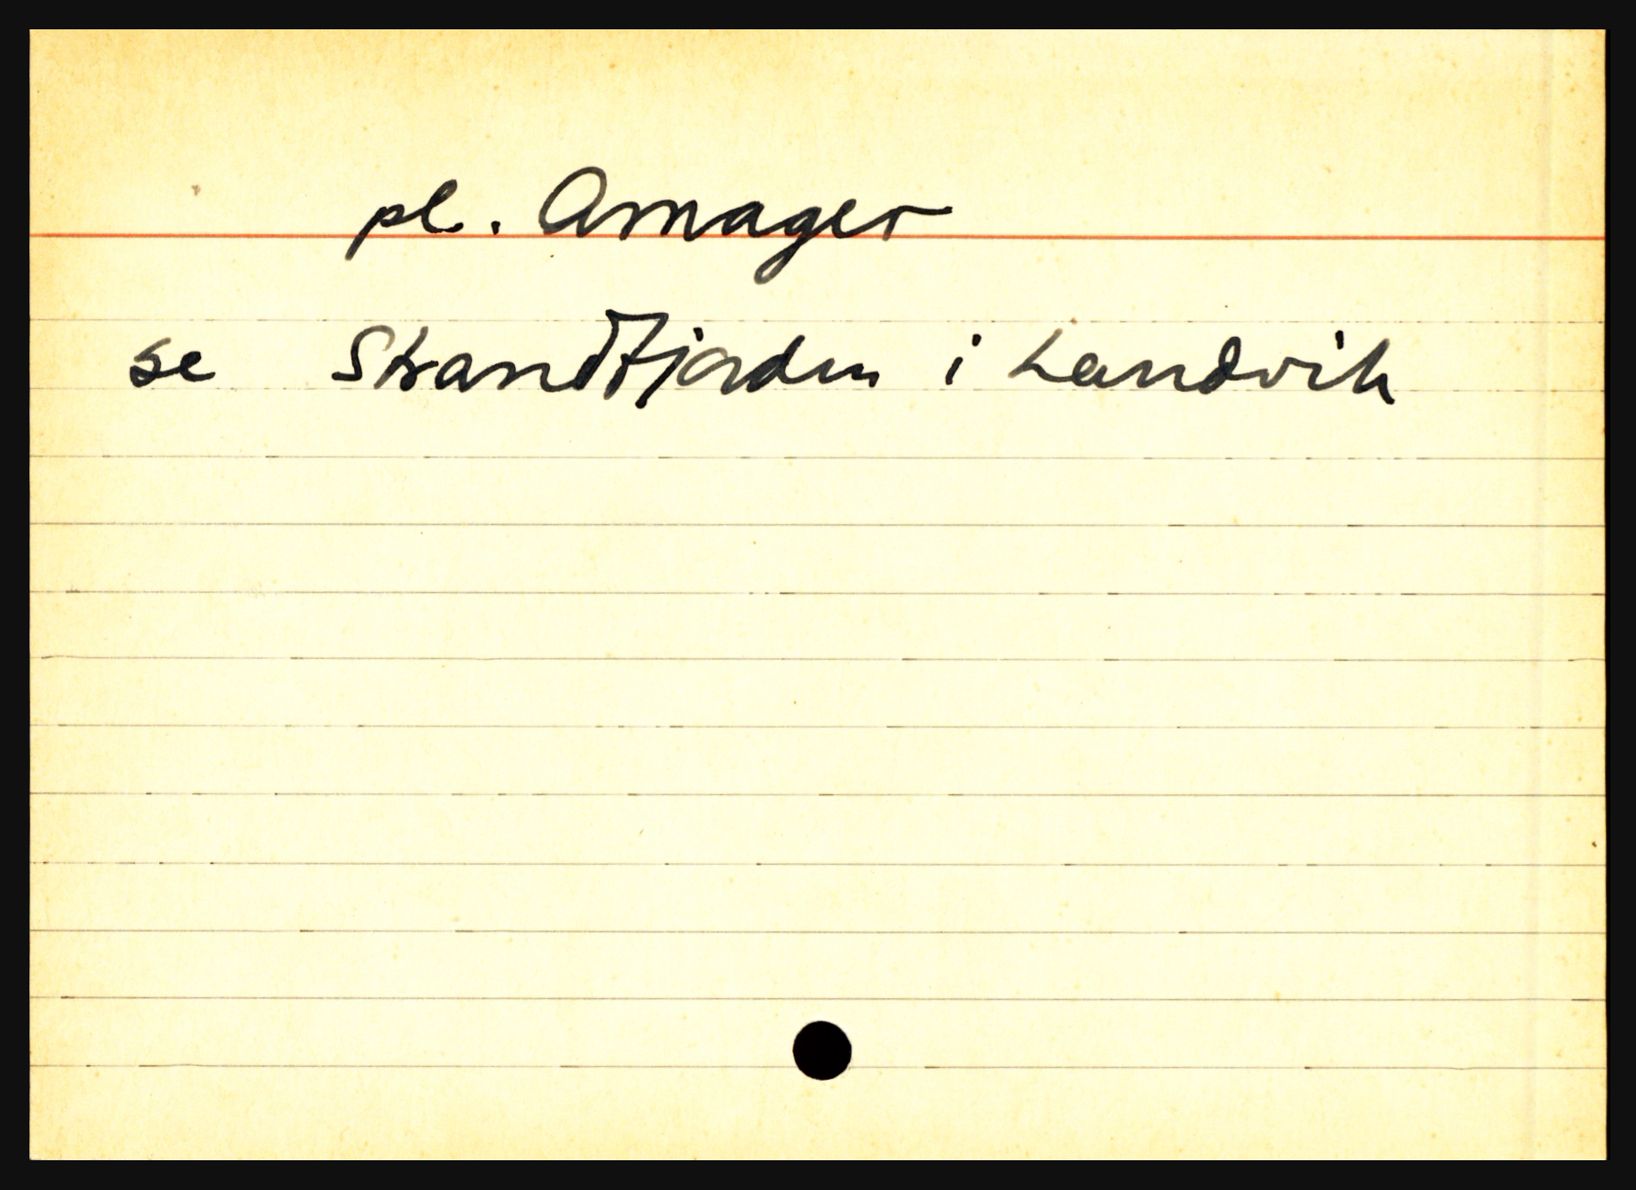 pl. Amager
se Strandfjorden i Landvik